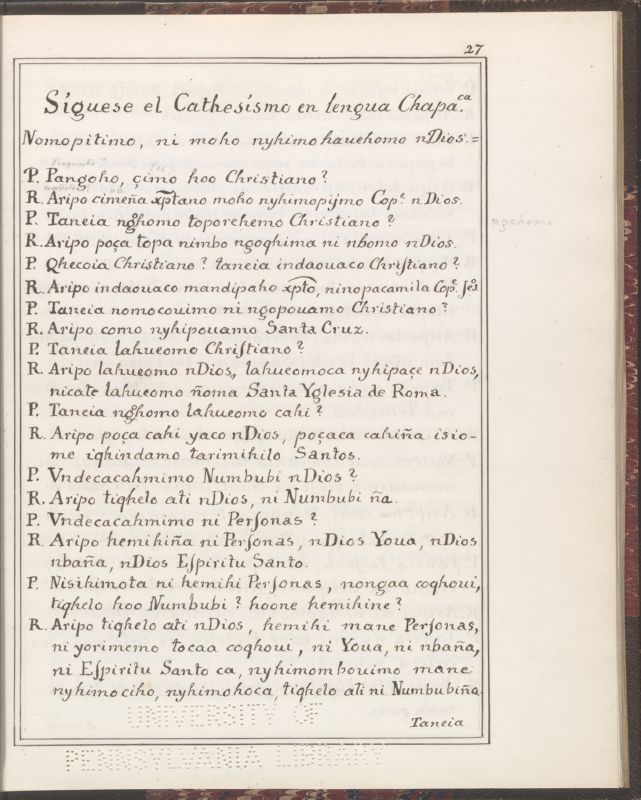 27
Síguese el Cathesísmo en lengua Chapa.ca
Nomopitimo, ni moho nyhimohauehomo nDios.=
Pregunto
P. Pangoho, çimo hoo Christiano?
R. Aripo cimeña xptano moho nyhimopijmo Cop.e nDios.
P. Taneia nghomo toporehemo Christiano?
ngohomo
R. Aripo poça topa nimbo ngoqhima ni nbomo nDios.
P. Qhecoia Christiano? taneia indaouaco Chriſtiano?
R. Aripo indaouaco mandipaho xpto, ninopacamila Cop.e Jes
P. Taneia nomocouimo ni ngopouamo Christiano?
R. Aripo como nyhipouamo Santa Cruz.
P. Taneia lahueomo Chriſtiano?
R. Aripo lahueomo nDios, lahueomoca nyhipaçe nDios,
nicate lahueomo ñoma Santa Yglesia de Roma.
P. Taneia nghomo lahueomo cahi?
R. Aripo poça cahi yaco nDios, poçaca cahiña isio-
me iqhindamo tarimihilo Santos.
P. Vndecacahmimo Numbubi nDios?
R. Aripo tiqhelo ati nDios, ni Numbubi ña.
P. Vndecacahmimo ni Perſonas?
R. Aripo hemihiña ni Perſonas, nDios Youa, nDios
nbaña, nDios Eſpiritu Santo.
P. Nisihimota ni hemihi Perſonas, nongaa coqhoui,
tiqhelo hoo Numbubi? hoone hemihine?
R. Aripo tiqhelo ati nDios, hemihi mane Perſonas,
ni yorimemo tocaa coqhoui, ni Youa, ni nbaña,
ni Eſpiritu Santo ca, nyhimombouimo mane
nyhimociho, nyhimohoca, tiqhelo ati ni Numbubiña.
Taneia
UNIVERSITY OF
PENNSYLVANIA LIBRARY